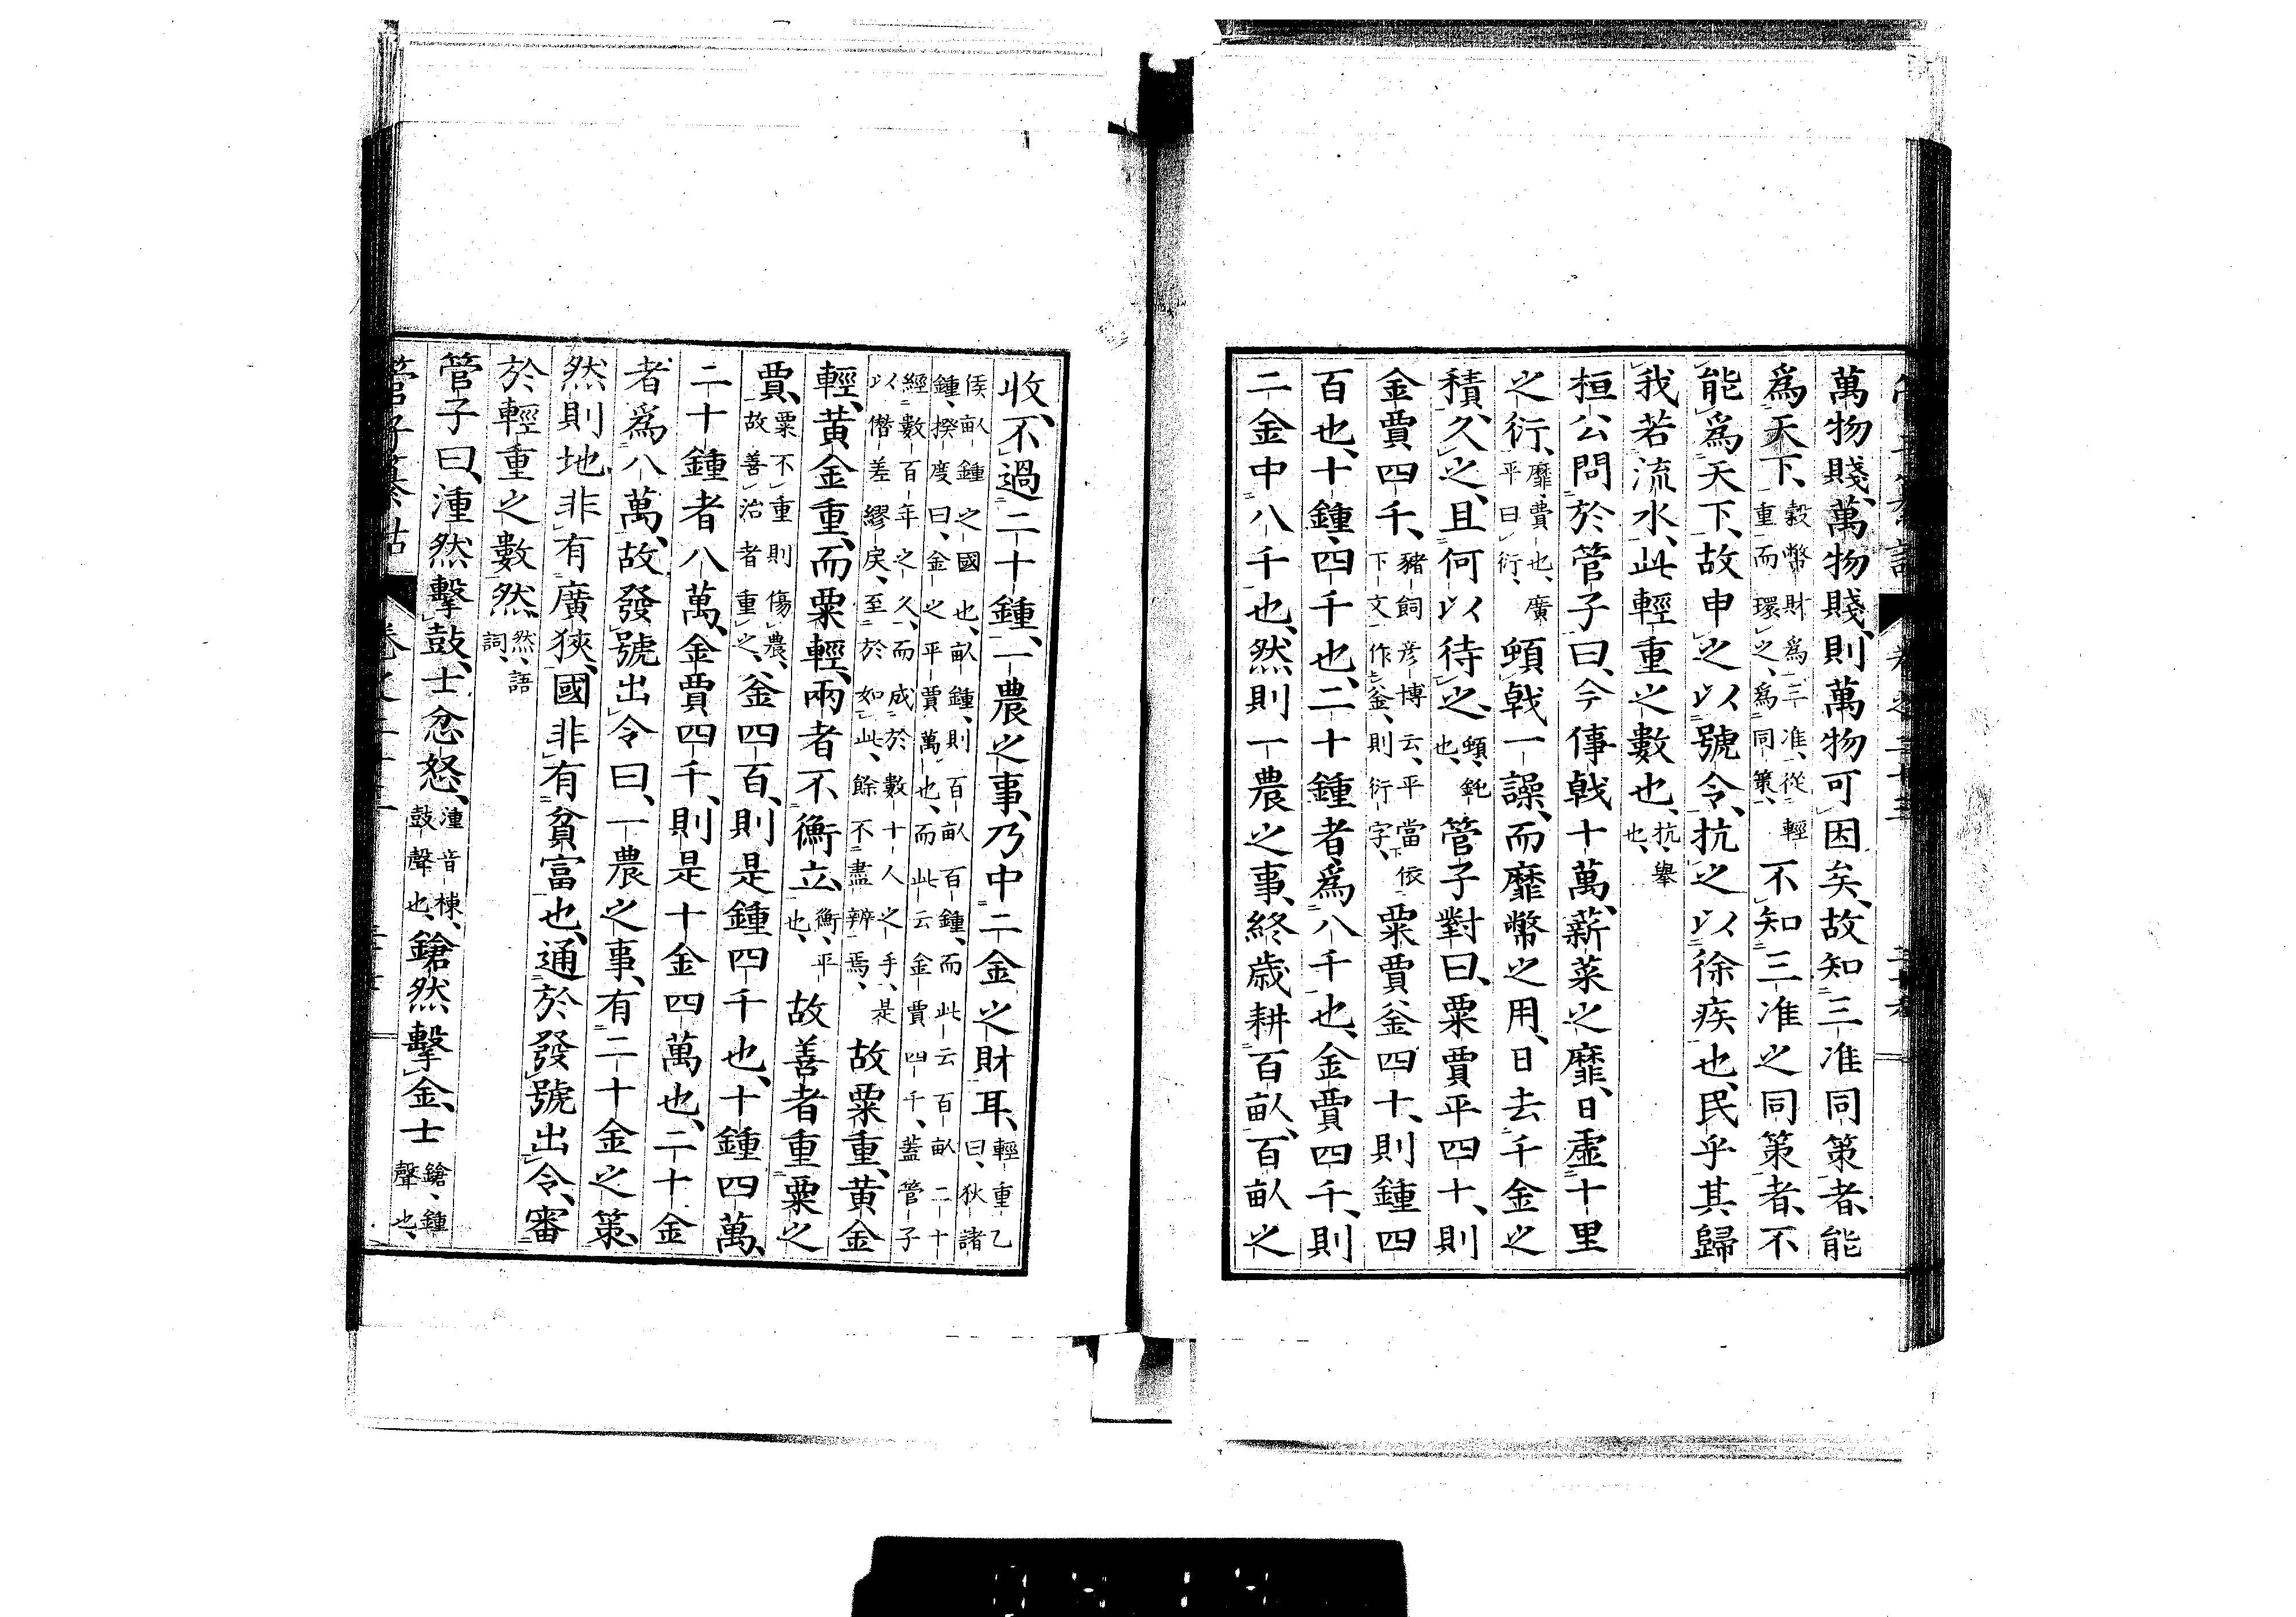 萬物賤、萬物賤、則萬物可因矣、故知三准同策者、能
爲天下、穀幣財爲三准、從輕重而環之、爲同策、不知三准之同策者、不
能爲天下、故申之以號令、抗之以徐疾也、民乎其歸
我若流水、此輕重之數也、抗、舉也、
桓公問於管子曰、今傳戟十萬、薪菜之靡、日虛十里
之衍、靡、費也、廣平曰衍、頓戟一譟、而靡幣之用、日去千金之
積、久之、且何以待之、頓、鈍也、管子對曰、粟賈平四十、則
金賈四千、豬飼彦博云、平當依下文作釜、則衍字、粟賈釜四十、則鍾四
百也、十鍾四千也、二十鍾者、爲八千也、金賈四千、則
二金中八千也、然則一農之事、終歲耕百畝、百畝之
收、不過二十鍾、一農之事、乃中二金之財耳、輕重乙曰、狄諸
侯畝鍾之國也、畝鍾、則百畝百鍾、而此云百畝二十鍾、揆度曰、金之平賈萬也、而此云金賈四千、蓋管子
經數百年之久、而成於數十人之手、是以僭差繆戾、至於如此、餘不盡辨焉、故粟重、黃金
輕、黃金重、而粟輕、兩者不衡立、衡、平也、故善者重粟之
賈、粟不重則傷農、故善治者重之、釜四百、則是鍾四千也、十鍾四萬、
二十鍾者八萬、金賈四千、則是十金四萬也、二十金
者爲八萬、故發號出令曰、一農之事、有二十金之策、
然則地非有廣狹、國非有貧富也、通於發號出令、審
於輕重之數然、然、語詞、
管子曰、湩然擊鼓、士忿怒、湩音棟、鼓聲也、鎗然擊金、士鎗、鍾聲也、
管子纂詁 卷之二十三